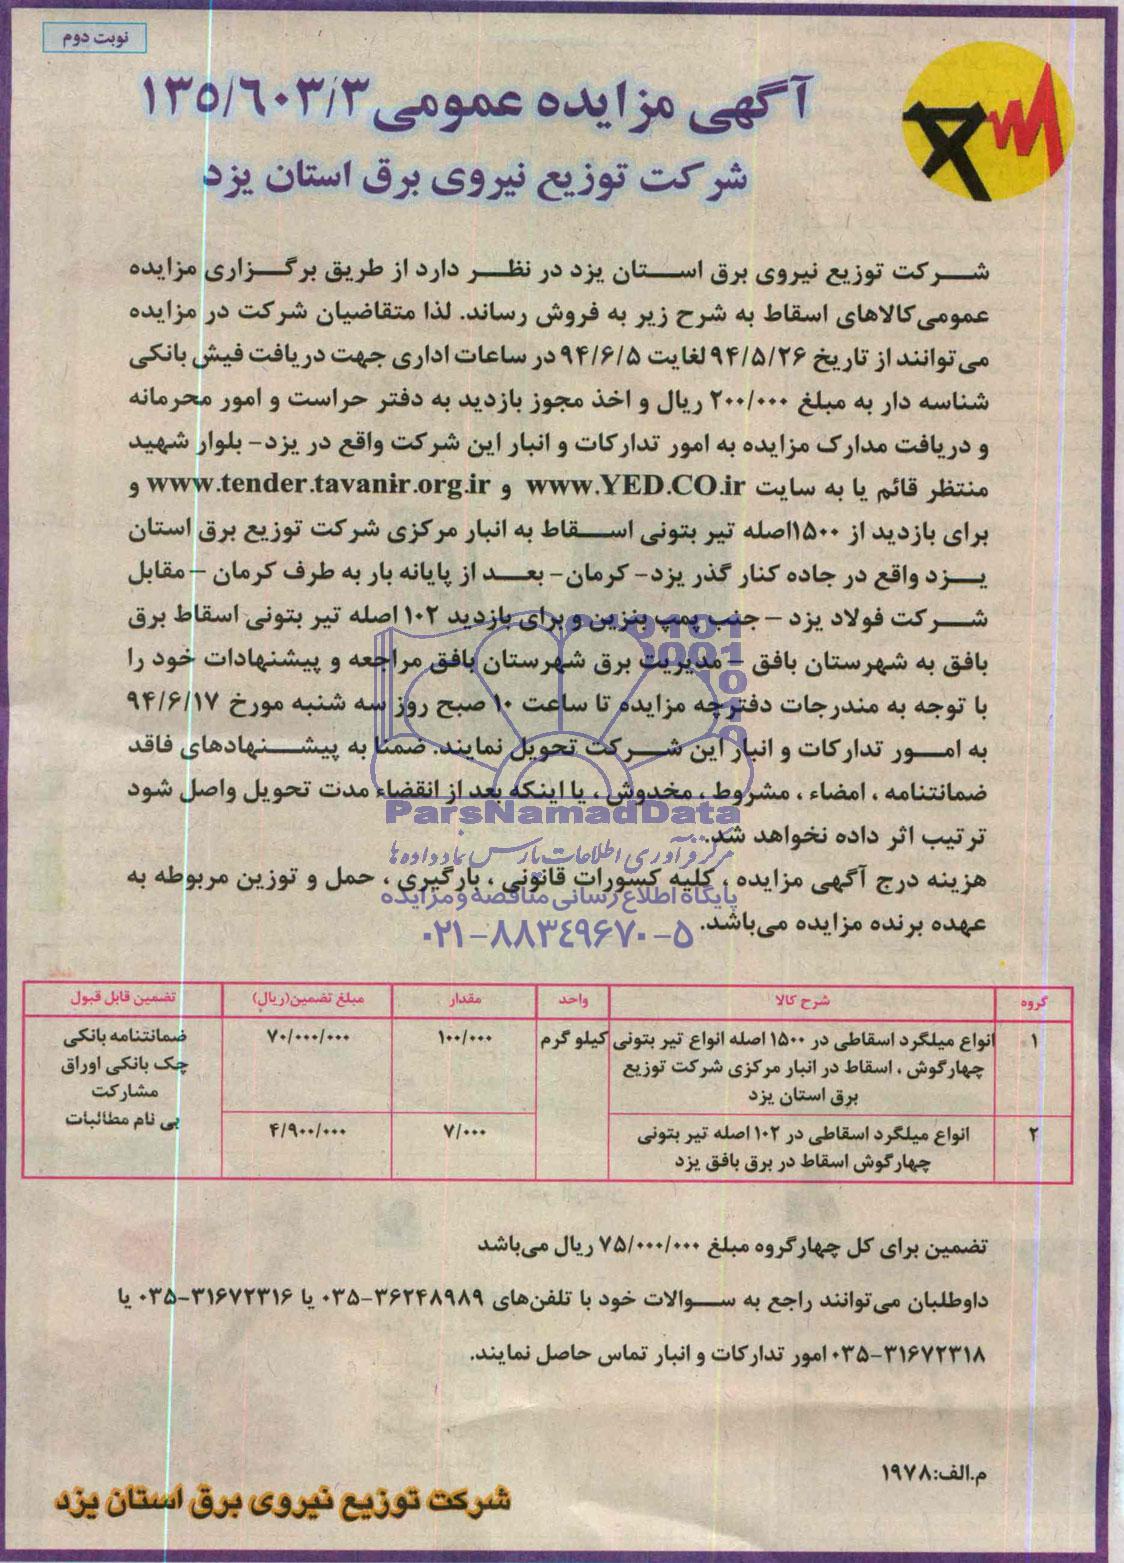 نوبت دوم
آگهی مزایده عمومی ۱۳۵/۶۰۳/۳
شرکت توزیع نیروی برق استان یزد
شرکت توزیع نیروی برق استان یزد در نظر دارد از طریق برگزاری مزایده
عمومی کالاهای اسقاط به شرح زیر به فروش رساند. لذا متقاضیان شرکت در مزایده
می‌توانند از تاریخ ۹۴/۵/۲۶ لغایت ۹۴/۶/۵ در ساعات اداری جهت دریافت فیش بانکی
شناسه دار به مبلغ ۲۰۰/۰۰۰ ریال و اخذ مجوز بازدید به دفتر حراست و امور محرمانه
و دریافت مدارک مزایده به امور تدارکات و انبار این شرکت واقع در یزد- بلوار شهید
منتظر قائم یا به سایت www.YED.CO.ir و www.tender.tavanir.org.ir و
برای بازدید از ۱۵۰۰اصله تیر بتونی اسقاط به انبار مرکزی شرکت توزیع برق استان
یزد واقع در جاده کنار گذر یزد- کرمان- بعد از پایانه بار به طرف کرمان – مقابل
شرکت فولاد یزد – جنب پمپ بنزین و برای بازدید ۱۰۲ اصله تیر بتونی اسقاط برق
بافق به شهرستان بافق – مدیریت برق شهرستان بافق مراجعه و پیشنهادات خود را
با توجه به مندرجات دفترچه مزایده تا ساعت ۱۰ صبح روز سه شنبه مورخ ۹۴/۶/۱۷
به امور تدارکات و انبار این شرکت تحویل نمایند. ضمنا به پیشنهادهای فاقد
ضمانتنامه ، امضاء ، مشروط ، مخدوش ، یا اینکه بعد از انقضاء مدت تحویل واصل شود
ترتیب اثر داده نخواهد شد.
هزینه درج آگهی مزایده ، کلیه کسورات قانونی ، بارگیری ، حمل و توزین مربوطه به
عهده برنده مزایده می‌باشد.
ParsNamadData
مرکز فرآوری اطلاعات پارس نماد داده ها
پایگاه اطلاع رسانی مناقصه و مزایده
۰۲۱-۸۸۳۴۹۶۷۰-۵
گروه شرح کالا واحد مقدار مبلغ تضمین(ریال) تضمین قابل قبول
۱ انواع میلگرد اسقاطی در ۱۵۰۰ اصله انواع تیر بتونی کیلو گرم ۱۰۰/۰۰۰ ۷۰/۰۰۰/۰۰۰ ضمانتنامه بانکی
چهارگوش ، اسقاط در انبار مرکزی شرکت توزیع چک بانکی اوراق
برق استان یزد مشارکت
بی نام مطالبات
۲ انواع میلگرد اسقاطی در ۱۰۲ اصله تیر بتونی ۷/۰۰۰ ۴/۹۰۰/۰۰۰
چهارگوش اسقاط در برق بافق یزد
تضمین برای کل چهارگروه مبلغ ۷۵/۰۰۰/۰۰۰ ریال می‌باشد
داوطلبان می‌توانند راجع به سوالات خود با تلفن‌های ۳۶۲۴۸۹۸۹-۰۳۵ یا ۳۱۶۷۲۳۱۶-۰۳۵ یا
۳۱۶۷۲۳۱۸-۰۳۵ امور تدارکات و انبار تماس حاصل نمایند.
م.الف:۱۹۷۸
شرکت توزیع نیروی برق استان یزد